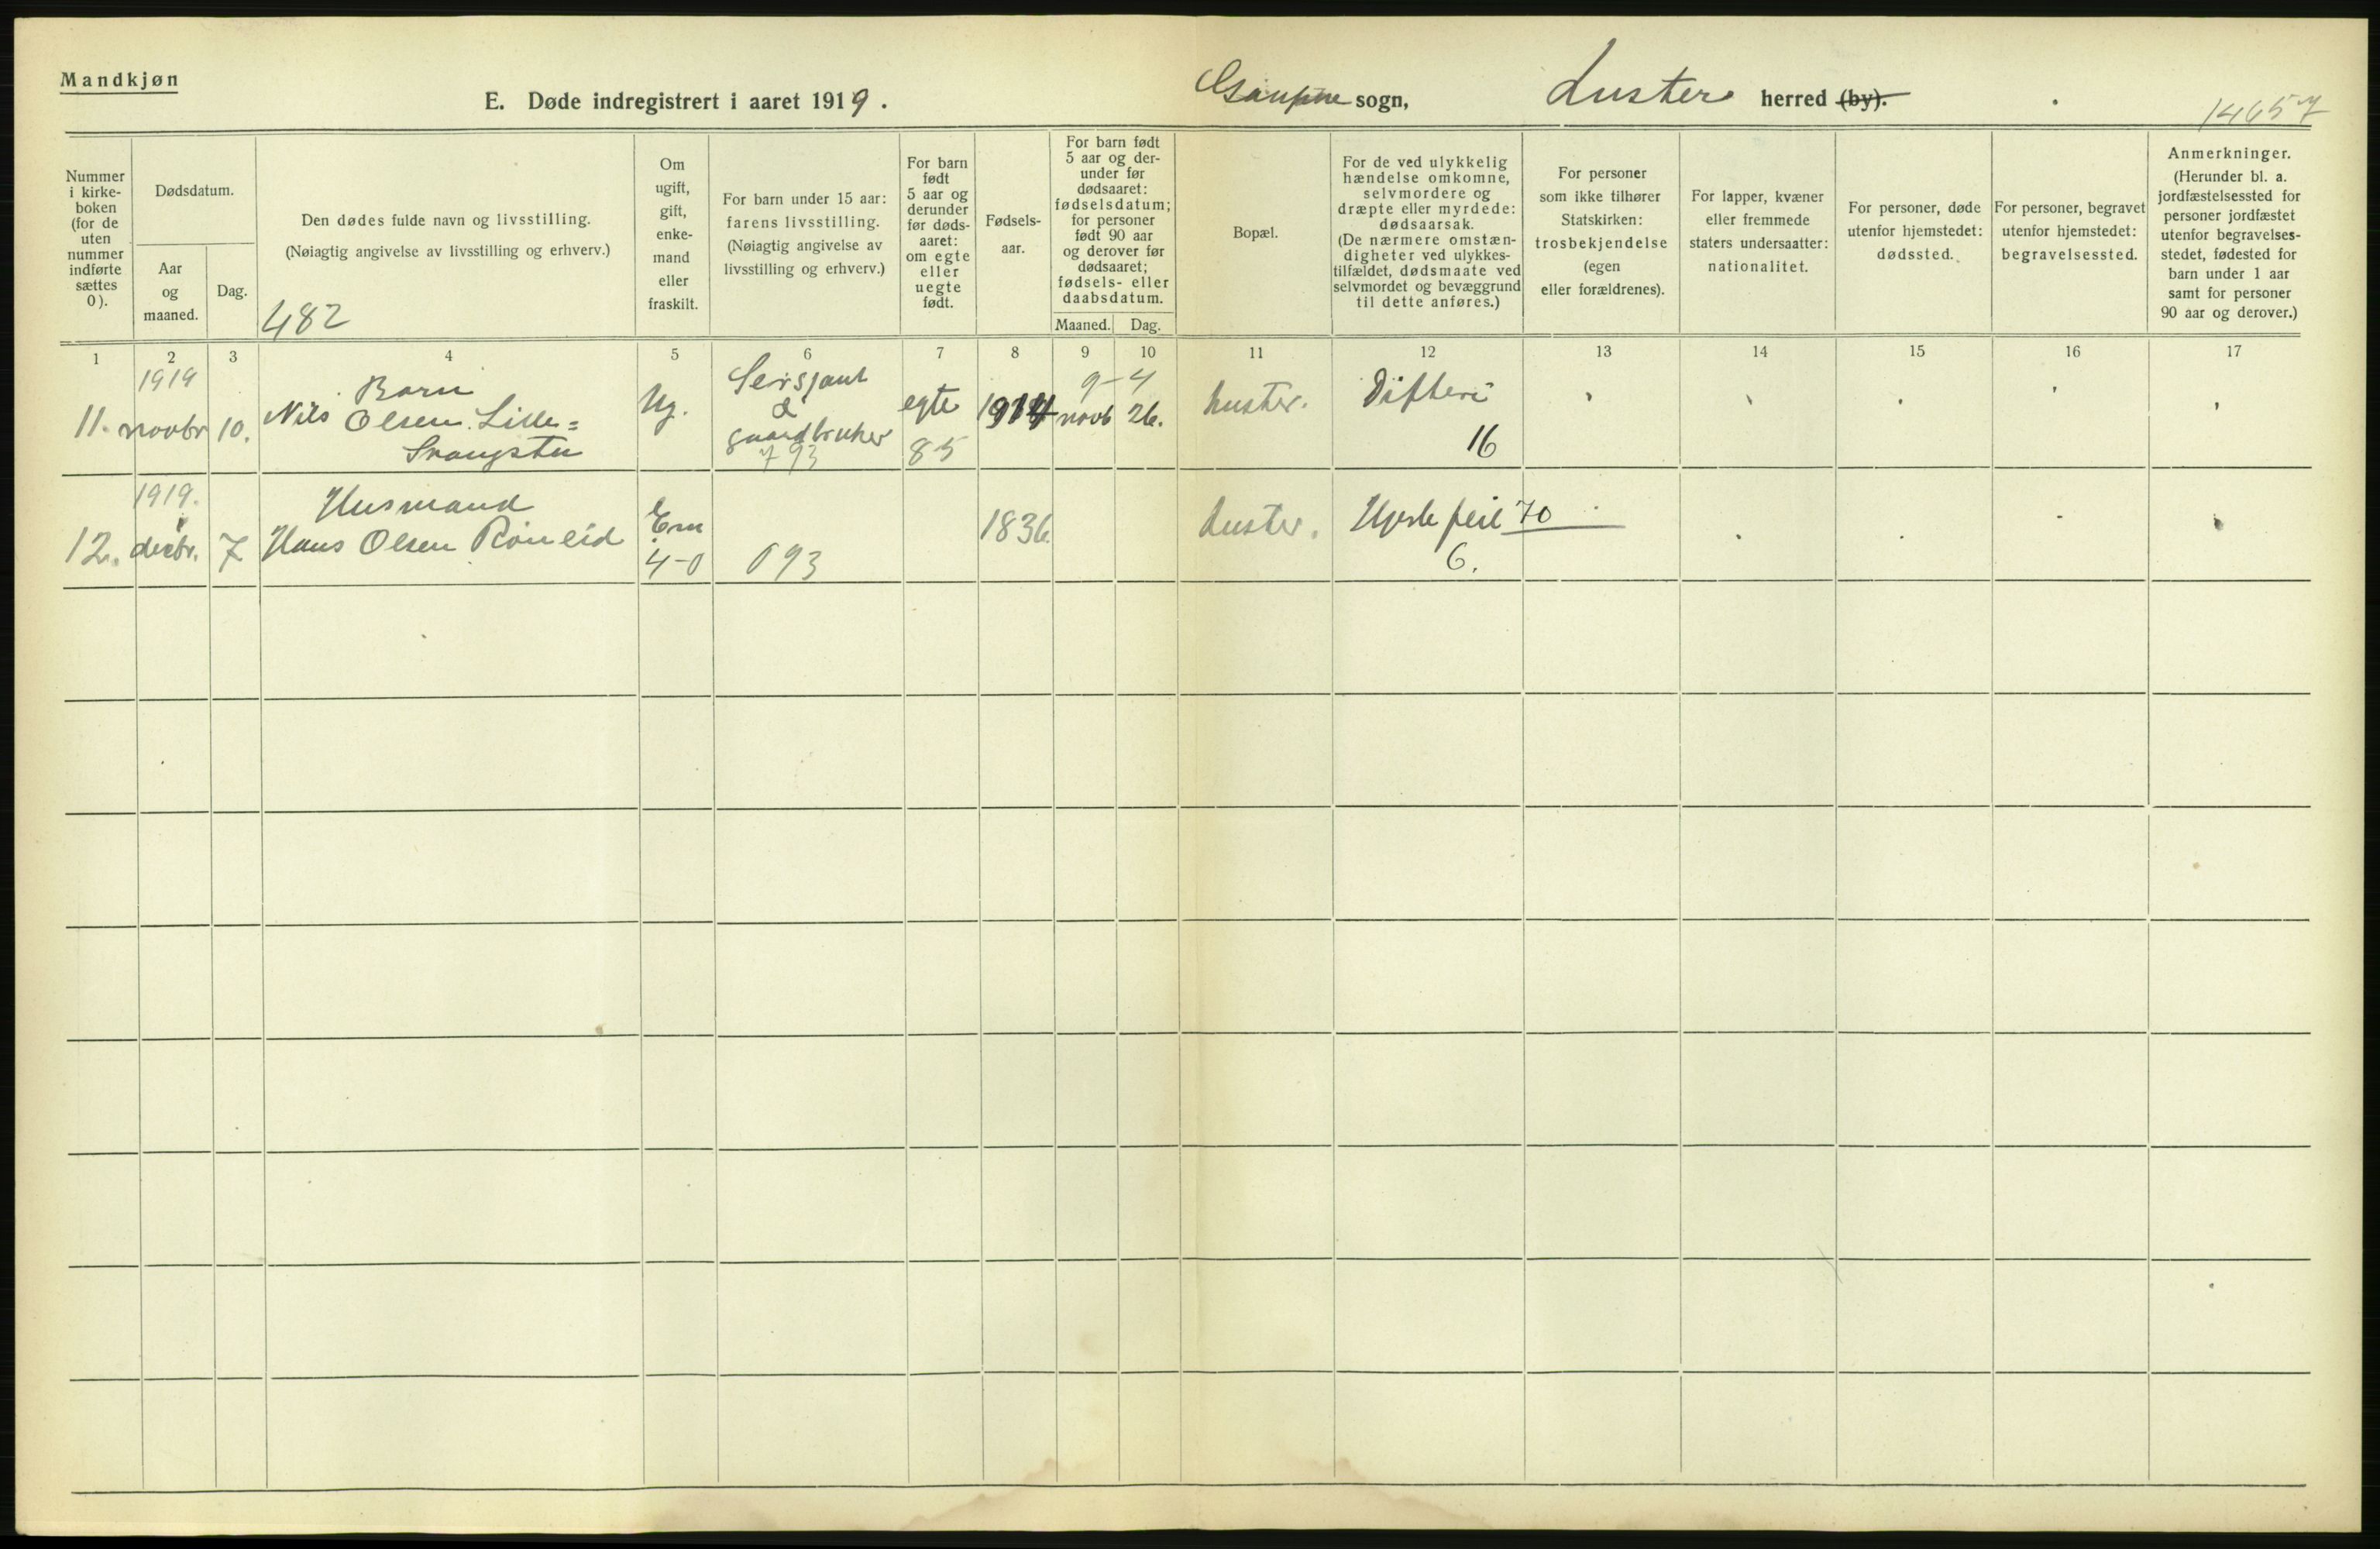 Mandkjøn
E. Døde indregistrert i aaret 1919.
Gaupne sogn,
Luster herred (by).
14657
Nummer
i kirke-
boken
(for de
uten
nummer
indførte
sættes
0).
Dødsdatum.
Aar
og
maaned.
Dag.
Den dødes fulde navn og livsstilling.
(Nøiagtig angivelse av livsstilling og erhverv.)
482
Om
ugift,
gift,
enke-
mand
eller
fraskilt.
For barn under 15 aar:
farens livsstilling.
(Nøiagtig angivelse av
livsstilling og erhverv.)
For barn
født
5 aar og
derunder
før døds-
aaret:
om egte
eller
uegte
født.
Fødsels-
aar.
For barn født
5 aar og der-
under før
dødsaaret:
fødselsdatum;
for personer
født 90 aar
og derover før
dødsaaret;
fødsels- eller
daabsdatum.
Maaned. Dag.
Bopæl.
For de ved ulykkelig
hændelse omkomne,
selvmordere og
dræpte eller myrdede:
dødsaarsak.
(De nærmere omstæn-
digheter ved ulykkes-
tilfældet, dødsmaate ved
selvmordet og bevæggrund
til dette anføres.)
For personer
som ikke tilhører
Statskirken:
trosbekjendelse
(egen
eller forældrenes).
For lapper, kvæner
eller fremmede
staters undersaatter:
nationalitet.
For personer, døde
utenfor hjemstedet:
dødssted.
For personer, begravet
utenfor hjemstedet:
begravelsessted.
Anmerkninger.
(Herunder bl. a.
jordfæstelsessted for
personer jordfæstet
utenfor begravelses-
stedet, fødested for
barn under 1 aar
samt for personer
90 aar og derover.)
1 2 3 4 5 6 7 8 9 10 11 12 13 14 15 16 17
1919
11. novbr 10.
Barn
Nils Olsen Lille=
Ug.
Sersjant
&
gaardbruker
793
egte
85
1914
9-4
novb 26.
Luster.
Difteri
16
1919.
12. decbr. 7
Husmand
Hans Olsen Røneid
Em
4-0
093
1836.
Luster.
Hjertefeil 70
6.